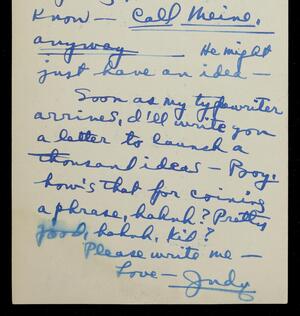 know — Call Meine,
anyway He might
just have an idea —
Soon as my typewriter
arrives, I'll write you
a letter to launch a
thousand ideas — Boy,
how's that for coining
a phrase, hahnh? Pretty
good, hahnh, kid?
Please write me —
Love — Judy